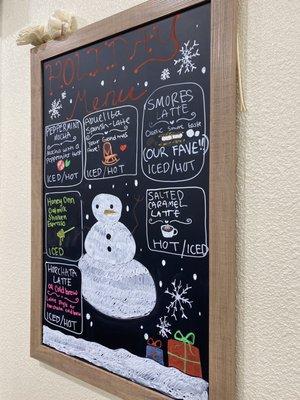 HOLIDAY
Menu
PEPPERMINT
MOCHA
MOCHA with a
PEPPERMINT
ICED/HOT
Abuelita
Spanish-Latte
Your Grandmas
ICED/HOT
S'MORES
LATTE
CLASSIC S'mores
LATTE
(OUR FAVE!!)
ICED/HOT
Honey Cinn.
Oatmilk
Shaken
Espresso
ICED
SALTED
CARAMEL
LATTE
HOT/ICED
HORCHATA
LATTE
OR Cold brew
ICED/HOT